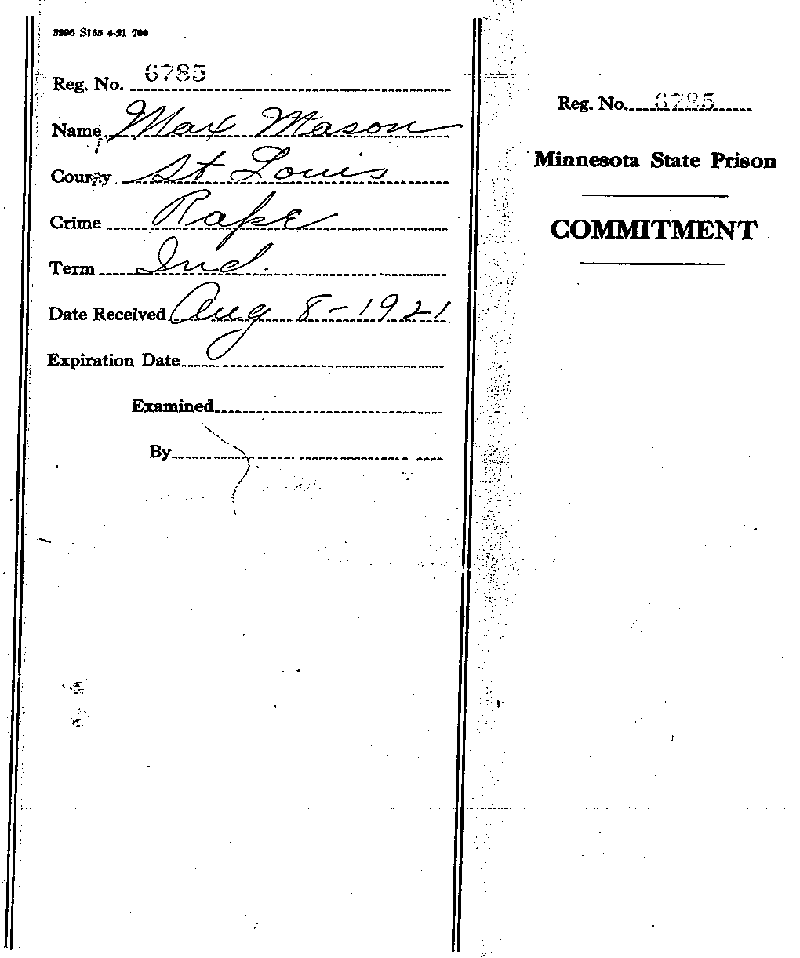 Reg. No. 6785
Name Max Mason
County St Louis
Crime Rape
Term Ind.
Date Received Aug 8-1921
Expiration Date
Examined
By
Reg. No. 6785
Minnesota State Prison
COMMITMENT